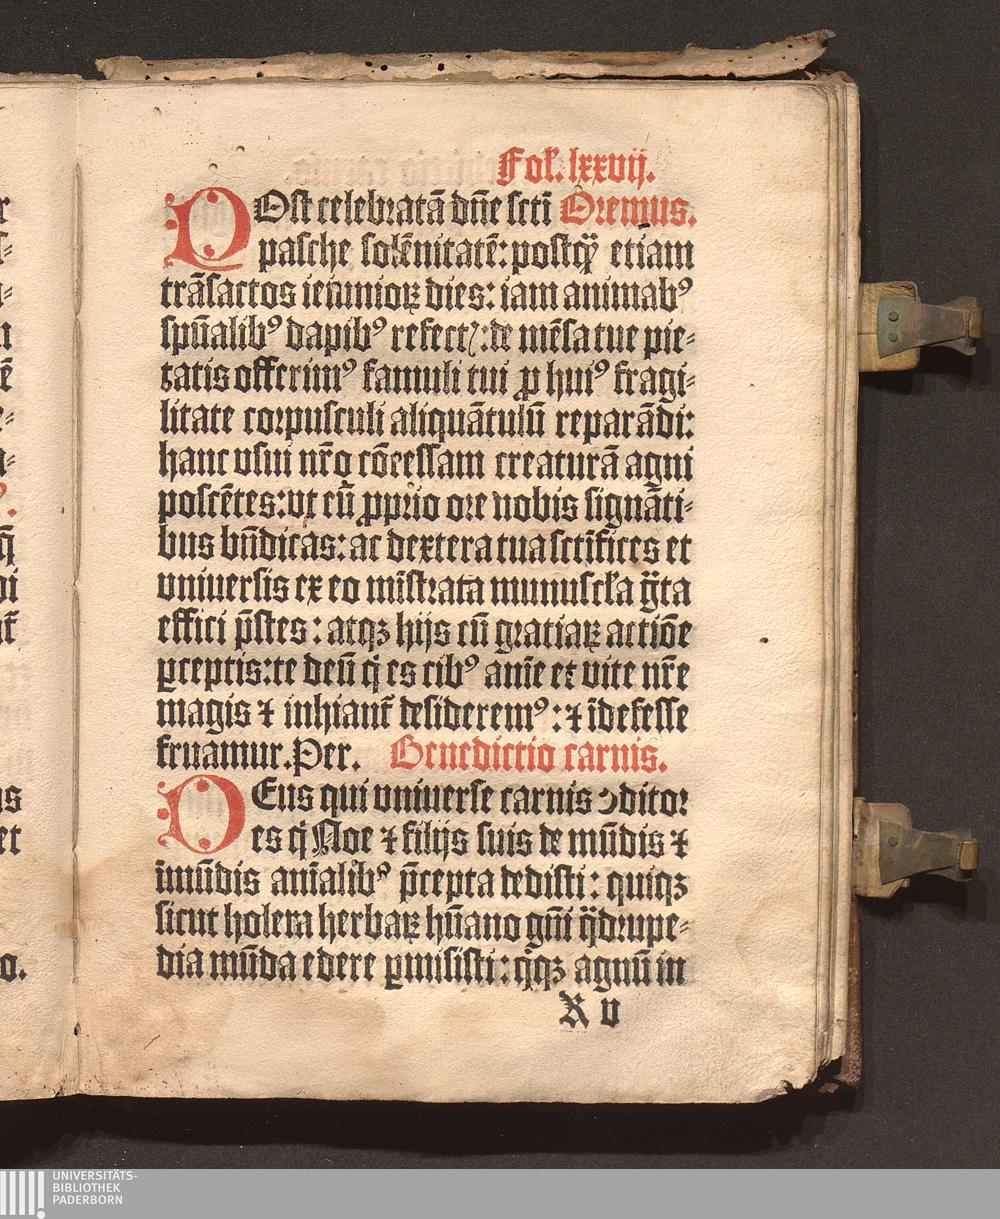 Fol'. lxxvij.
POst celebratā dñe scti Oremus.
pasche solēnitatē: postq̈ꝫ etiam
trāsactos ieiunioꝝ dies: iam animabꝰ
spūalibꝰ dapibꝰ refect᷑: de mēsa tue pie⸗
tatis offerimꝰ famuli tui ꝓ huiꝰ fragi⸗
litate corpusculi aliquātulū reparādi:
hanc vsui nr̄o cōcessam creaturā agni
poscētes: vt eū ꝓprio ore nobis signāti⸗
bus bn̄dicas: ac dextera tua sctīfices et
vniuersis ex eo mīstrata munuscl̄a g̈ta
effici p̄stes: atqꝫ hijs cū gratiaꝝ actiōe
ꝑceptis: te deū q̇ es cibꝰ anīe et vite nr̄e
magis ⁊ inhiant̄ desideremꝰ: ⁊ īdefesse
fruamur. Per. Benedictio carnis.
DEus qui vniuerse carnis ꝯditor
es q̇ Noe ⁊ filijs suis de mūdis ⁊
īmūdis anīalibꝰ p̄cepta dedisti: quiqꝫ
sicut holera herbaꝝ hūano gn̄i q̈drupe⸗
dia mūda edere ꝑmisisti: q̇qꝫ agnū in
R v
r
n
ē
q̄
di
us
et
o.
UNIVERSITÄTS-
BIBLIOTHEK
PADERBORN